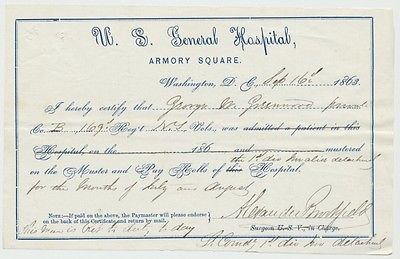 U. S. General Hospital,
ARMORY SQUARE.
Washington, D. C., Sep 16d 1863
I hereby certify that George W. Greenwood
Co. B 169d Reg't N.Y. Vols., was admitted a patient in this
Hospital, on the 186 and mustered
the 1st div Invalid detachmt
on the Muster and Pay Rolls of this Hospital.
for the months of July and August
Alexander
Surgeon U. S. V., in Charge.
NOTE:—If paid on the above, the Paymaster will please endorse
on the back of this Certificate and return by mail.
This man is to duty to day
Comdg 1st div Inv detachmt